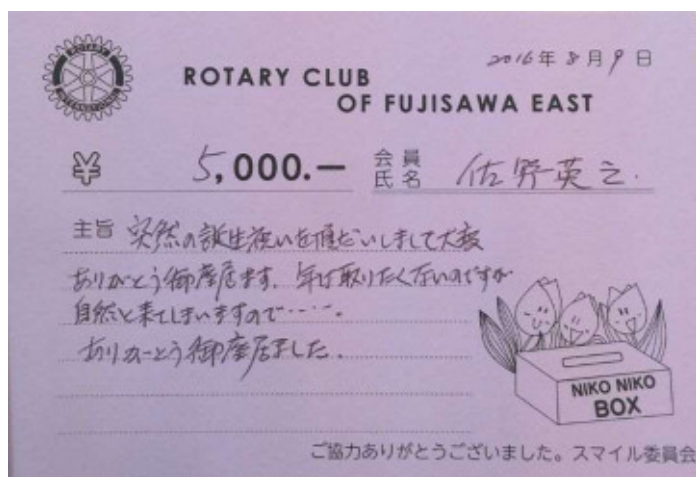 2016年8月9日
ROTARY INTERNATIONAL
ROTARY CLUB
OF FUJISAWA EAST
¥ 5,000.— 会員氏名 佐野英之.
主旨 突然の誕生祝いを頂だいしまして大変
ありがとう御座居ます. 年は取りたくないのですが
自然と来てしまいますので‥‥。
ありがとう御座居ました.
NIKO NIKO
BOX
ご協力ありがとうございました。スマイル委員会